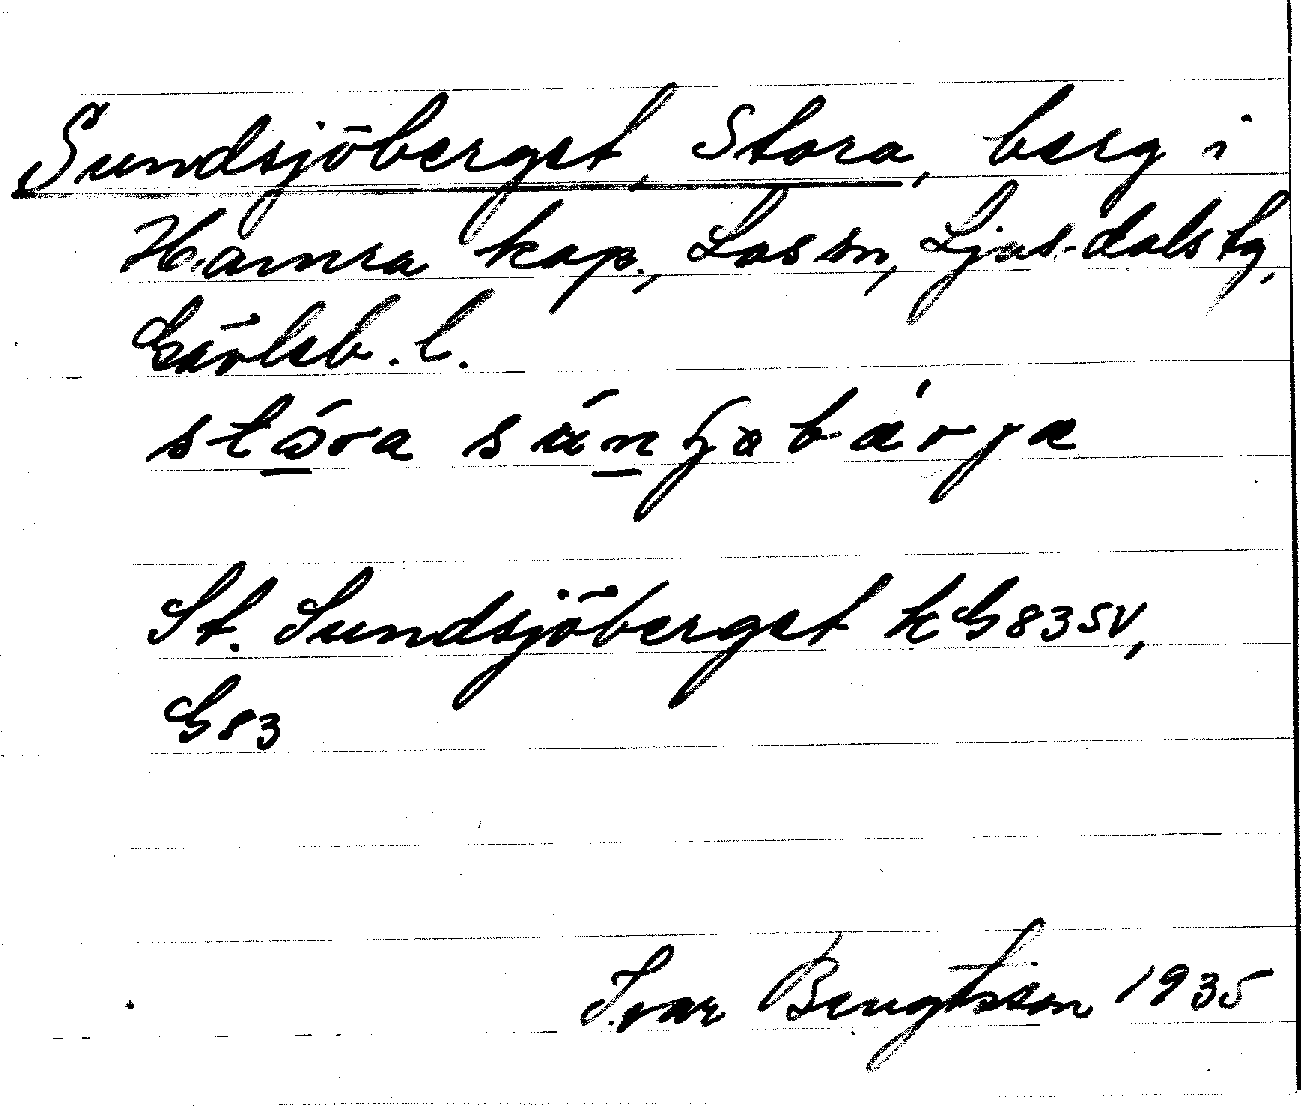 Sundsjöberget, Stora, berg i
Hamra kap., Los sn, Ljusdals tg,
Gävleb. l.
St. Sundsjöberget k G83SV,
G83
Ivar Bengtsson 1935